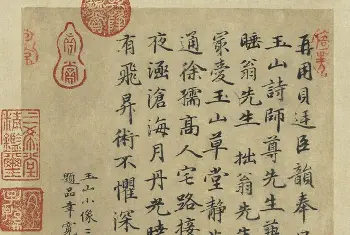 再用貝廷臣韻奉
玉山詩師尊先生
睡翁先生 拙翁先生
最愛玉山草堂静
通徐孺高人宅路接
夜涵滄海月丹光曉
有飛昇術不懼深
玉山小像
題品章
三希堂
精鑑璽